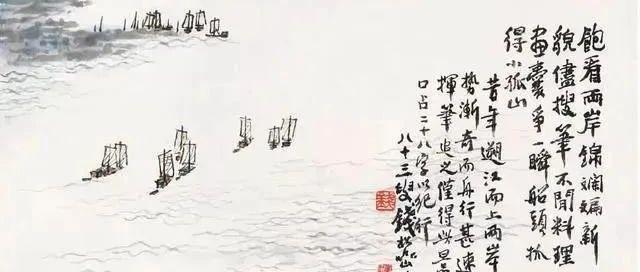 飽看兩岸錦斕斒新
貌儘搜筆不閒料理
畫囊爭一瞬船頭抓
得小孤山
昔年遡江而上兩岸
勢漸奇而舟行甚速
揮筆追之僅得此
口占二十八字以紀行
八十三叟錢松喦